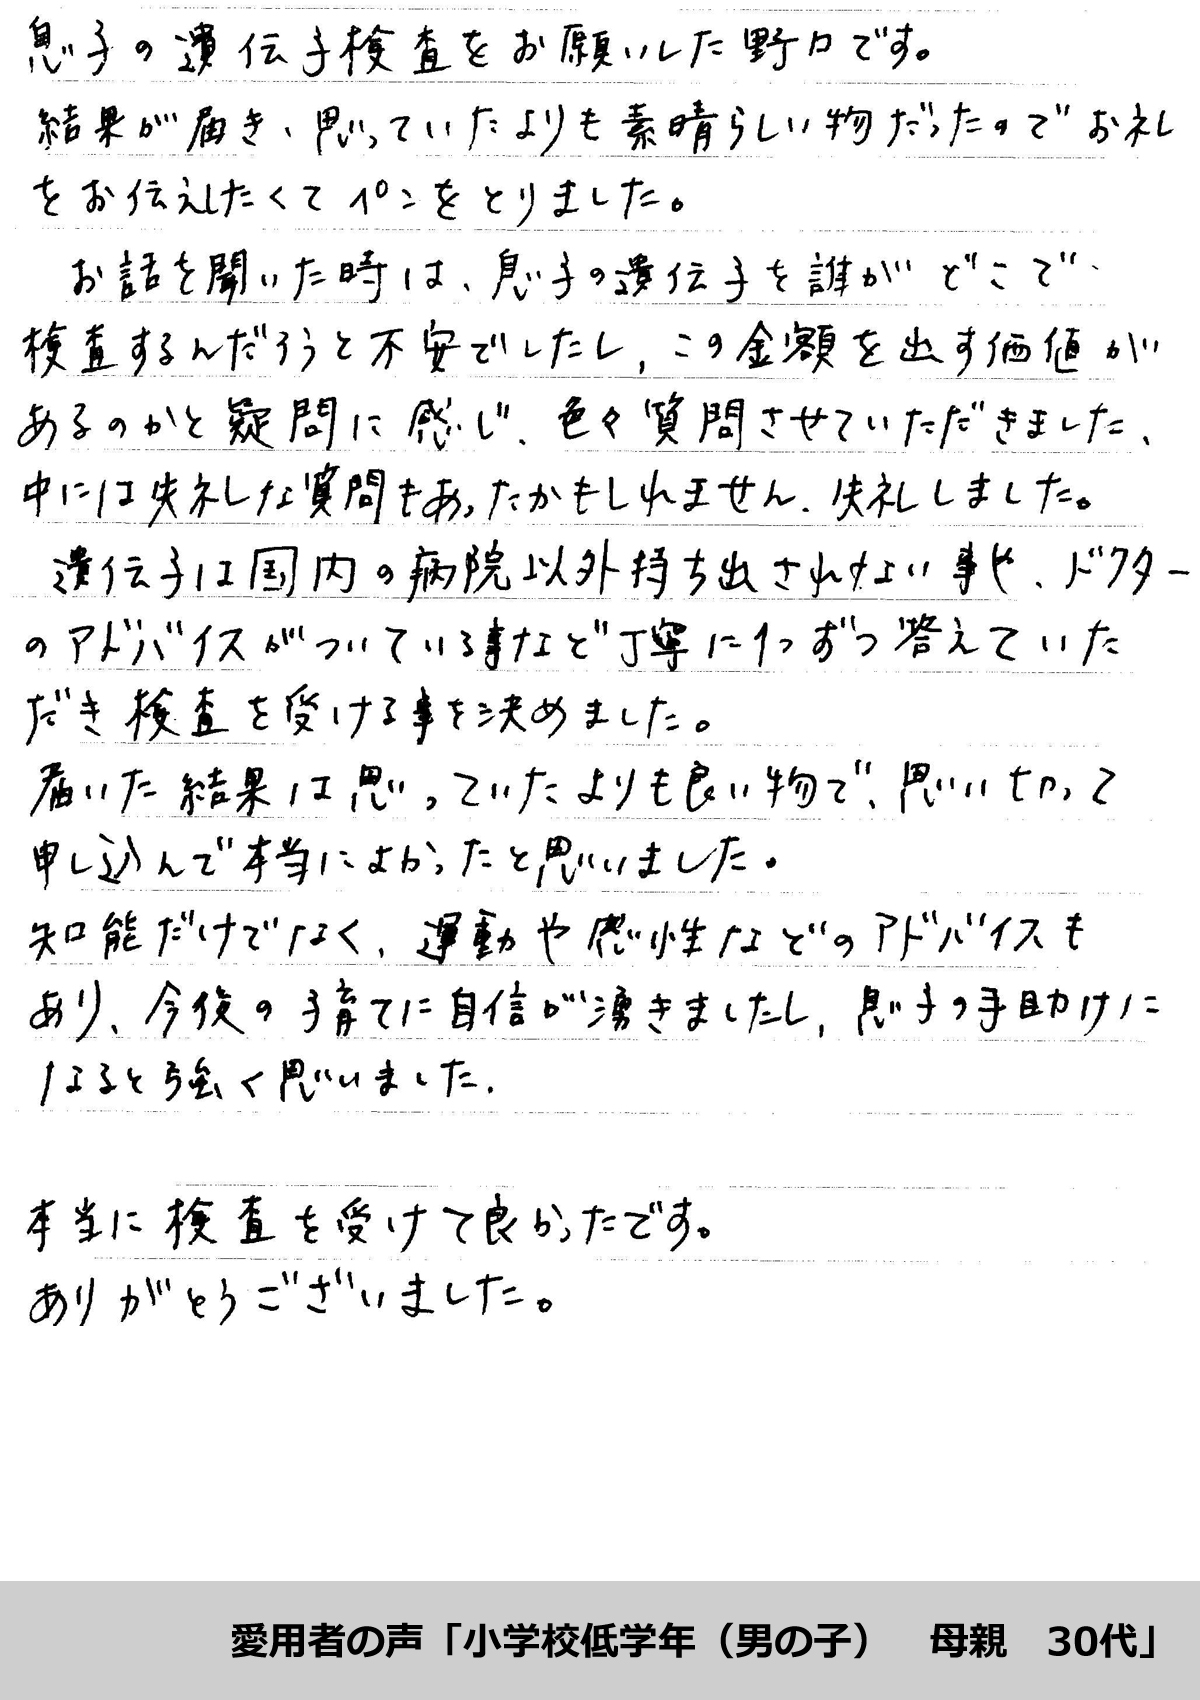 息子の遺伝子検査をお願いした野口です。
結果が届き、思っていたよりも素晴らしい物だったのでお礼
をお伝えしたくてペンをとりました。
お話を聞いた時は、息子の遺伝子を誰がどこで、
検査するんだろうと不安でしたし、この金額を出す価値が
あるのかと疑問に感じ、色々質問させていただきました、
中には失礼な質問もあったかもしれません、失礼しました。
遺伝子は国内の病院以外持ち出されない事や、ドクター
のアドバイスがついている事など丁寧に1つずつ答えていた
だき検査を受ける事を決めました。
届いた結果は思っていたよりも良い物で、思い切って
申し込んで本当によかったと思いました。
知能だけでなく、運動や感性などのアドバイスも
あり、今後の子育てに自信が湧きましたし、息子の手助けに
なると強く思いました.
本当に検査を受けて良かったです。
ありがとうございました。
愛用者の声「小学校低学年（男の子）　母親　30代」